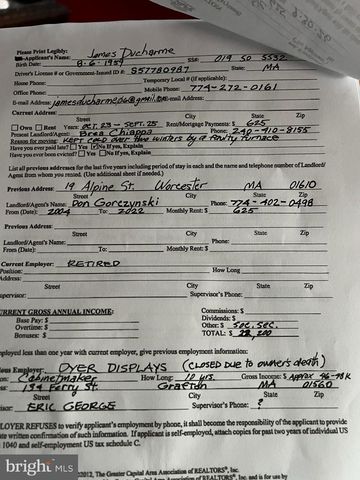 Please Print Legibly:
Applicant's Name: James Ducharme
Birth Date: 8-6-1959 SS#: 019 50 5532
Driver's License # or Government-Issued ID #: S57780987 State: MA
Home Phone: Temporary Local # (if applicable):
Office Phone: Mobile Phone: 774-272-0161
E-mail Address: jamesducharme06@gmail.com E-mail Address:
Current Address:
Street City State Zip
Own Rent Years: Oct. 23 - Sept. 25 Rent/Mortgage Payments: $ 625
Present Landlord/Agent: Brea Chiappa Phone: 240-410-8155
Reason for moving: Kept cold over two winters by a faulty furnace
Have you ever paid late? Yes No If yes, Explain
Have you ever been evicted? Yes No If yes, Explain
List all previous addresses for the last five years including period of stay in each and the name and telephone number of Landlord/
Agent from whom you rented. (Use additional sheet if needed.)
Previous Address: 19 Alpine St. Worcester MA 01610
Street City State Zip
Landlord/Agent's Name: Don Gorczynski Phone: 774-402-0498
From (Date): 2004 To: 2022 Monthly Rent: $ 625
Previous Address:
Street City State Zip
Landlord/Agent's Name: Phone:
From (Date): To: Monthly Rent: $
Current Employer: RETIRED
Position: How Long
Address:
Street City State Zip
Supervisor: Supervisor's Phone:
CURRENT GROSS ANNUAL INCOME: Commissions: $
Base Pay: $ Dividends: $
Overtime: $ Other: $ Soc. Sec.
Bonuses: $ TOTAL: $ 22,200
employed less than one year with current employer, give previous employment information:
ious Employer: DYER DISPLAYS (closed due to owners death)
Cabinetmaker How Long: 10 yrs. Gross Income: $ Approx 96-98K
ss: 194 Ferry St. Grafton MA 01560
Street City State Zip
isor: ERIC GEORGE Supervisor's Phone: ?
LOYER REFUSES to verify applicant's employment by phone, it shall become the responsibility of the applicant to provide
te written confirmation of such information. If applicant is self-employed, attach copies for past two years of individual US
1040 and self-employment US tax schedule C.
©2012, The Greater Capital Area Association of REALTORS®, Inc.
REALTORS®, Inc. and is for use by
bright MLS